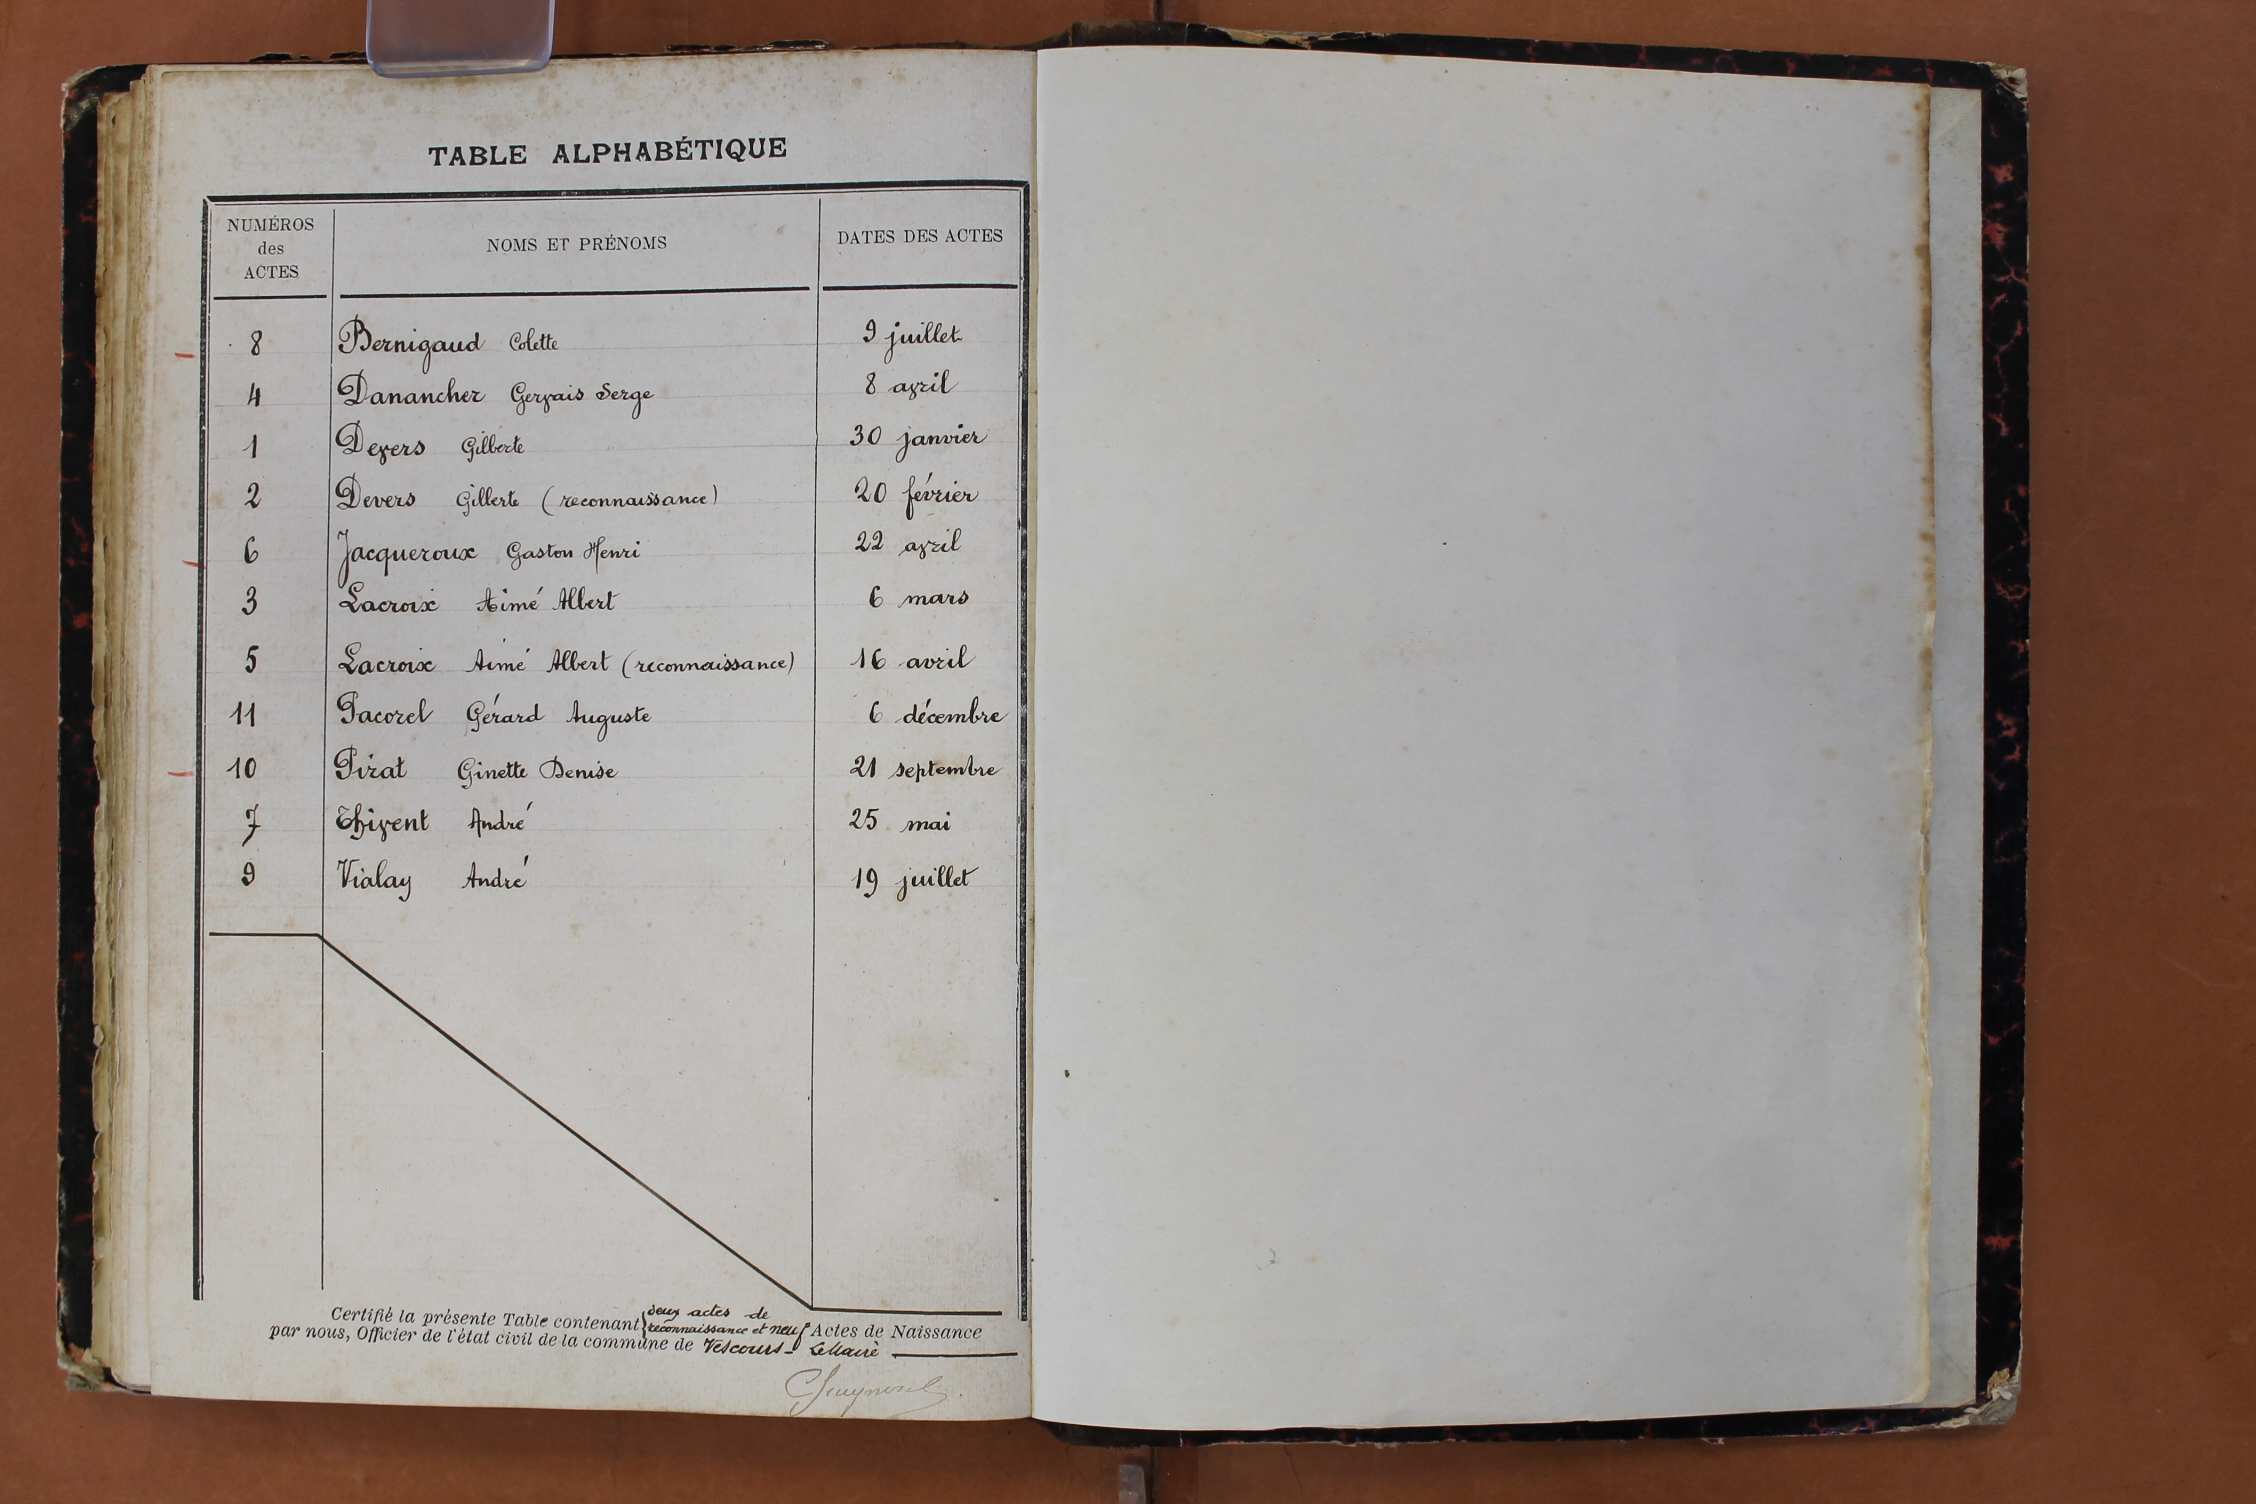 TABLE ALPHABÉTIQUE
NUMÉROS des ACTES NOMS ET PRÉNOMS DATES DES ACTES
8 Bernigaud Colette 9 juillet
4 Danancher Gervais Serge 8 avril
1 Devers Gilberte 30 janvier
2 Devers Gilberte (reconnaissance) 20 février
6 Jacqueroux Gaston Henri 22 avril
3 Lacroix Aimé Albert 6 mars
5 Lacroix Aimé Albert (reconnaissance) 16 avril
11 Pacorel Gérard Auguste 6 décembre
10 Pirat Ginette Denise 21 septembre
7 Thivent André 25 mai
9 Vialay André 19 juillet
Certifié la présente Table contenant deux actes de reconnaissance et neuf Actes de Naissance
par nous, Officier de l'état civil de la commune de Vescours - Le Maire